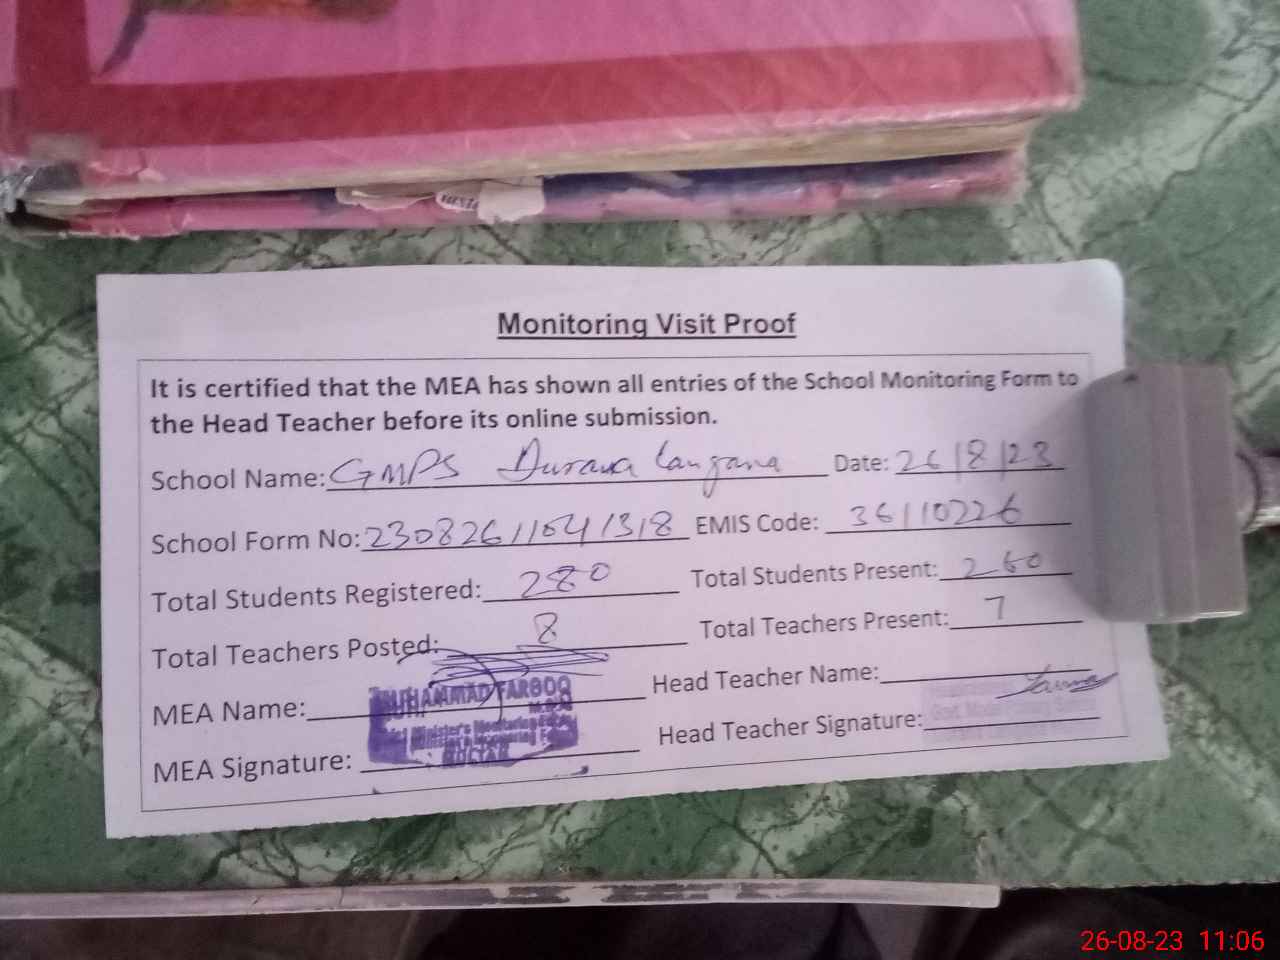 Monitoring Visit Proof
It is certified that the MEA has shown all entries of the School Monitoring Form to
the Head Teacher before its online submission.
School Name: GMPS Durana Langana Date: 26/8/23
School Form No: 23082611041318 EMIS Code: 36110226
Total Students Registered: 280 Total Students Present: 260
Total Teachers Posted: 8 Total Teachers Present: 7
MEA Name: MUHAMMAD FAROOQ Head Teacher Name:
MEA Signature: Head Teacher Signature:
26-08-23 11:06